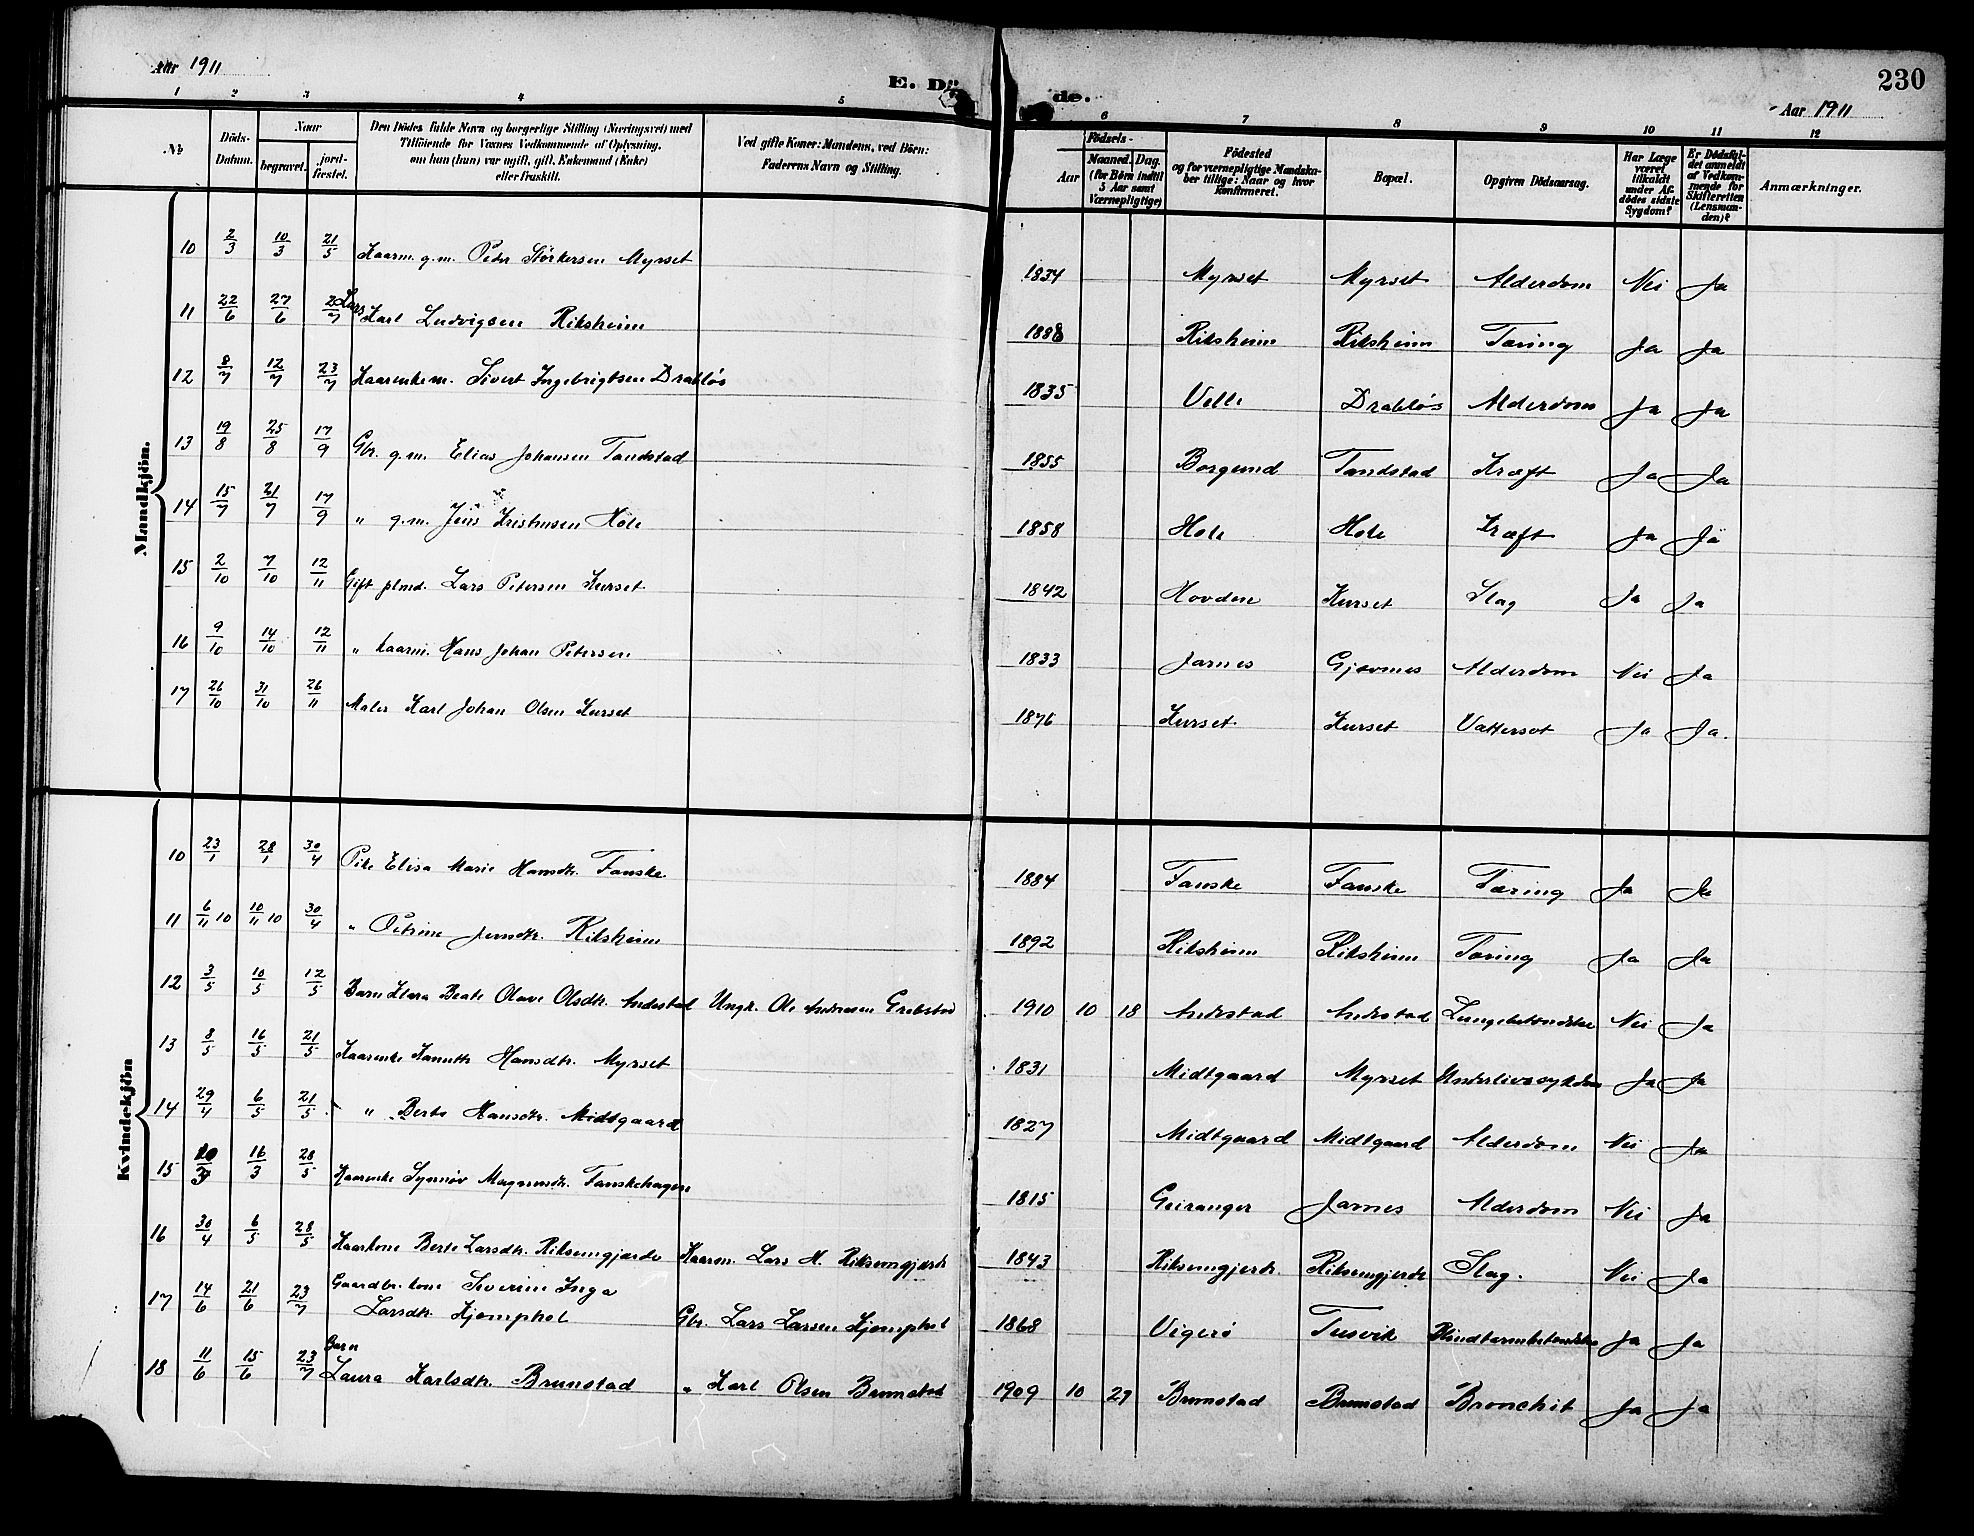 Aar 1911
E. Dö de.
230
Aar 1911
1 2 3 4 5 6 7 8 9 10 11 12
No
Döds-Datum.
Naar
begravet.
jord-fæstet.
Den Dödes fulde Navn og borgerlige Stilling (Næringsvei) med
Tilföiende for Voxnes Vedkommende af Oplysning,
om han (hun) var ugift, gift, Enkemand (Enke)
eller fraskilt.
Ved gifte Koner: Mandens, ved Börn:
Faderens Navn og Stilling.
Födsels-
Aar
Maaned. Dag.
(for Börn indtil
5 Aar samt
Værnepligtige)
Födested
og for værnepligtige Mandska-
ber tillige: Naar og hvor
konfirmeret.
Bopæl.
Opgiven Dödsaarsag.
Har Læge
været
tilkaldt
under Af-
dödes sidste
Sygdom?
Er Dödsfal-
det anmeldt
af Vedkom-
mende for
Skifteretten
(Lensman-
den)?
Anmærkninger.
Mandkjön.
10 2/3 10/3 21/5 Kaarm. g.m. Peder Störkersen Myrset 1834 Myrset Myrset Alderdom Nei Ja
11 22/6 27/6 2/7 Lars Karl Ludvigsen Riksheim 1888 Riksheim Riksheim Tæring Ja Ja
12 8/7 12/7 23/7 Kaarenkem. Sivert Ingebrigtsen Drabløs 1835 Velle Drabløs Alderdom Ja Ja
13 19/8 25/8 17/9 Gbr. g.m. Elias Johansen Tandstad 1855 Borgund Tandstad Kræft Ja Ja
14 15/7 21/7 17/9 " g.m. Jens Kristensen Hole 1858 Hole Hole Kræft Ja Ja
15 2/10 7/10 12/11 Gift plmd. Lars Petersen Kurset 1842 Hovden Kurset Slag Ja Ja
16 9/10 14/10 12/11 " kaarm. Hans Johan Petersen 1833 Jarnes Gjævnes Alderdom Nei Ja
17 26/10 31/10 26/11 Maler Karl Johan Olsen Kurset 1876 Kurset Kurset Vattersot Ja Ja.
Kvindekjön
10 23/1 28/1 30/4 Pike Elisa Marie Hansdtr. Fauske 1884 Fauske Fauske Tæring Ja Ja
11 6/11 10 10/11 10 30/4 " Petrine Jensdtr. Riksheim 1892 Riksheim Riksheim Tæring Ja Ja
12 3/5 10/5 12/5 Barn Klara Beate Olave Olsdtr. Andestad Ungk. Ole Andreasen Grebstad 1910 10 18 Andestad Andestad Lungebetændelse Nei Ja
13 8/5 16/5 21/5 Kaarenke Hansdtr. Myrset 1831 Midtgaard Myrset Underlivssygdom Ja Ja
14 29/4 6/5 21/5 " Berte Hansdtr. Midtgaard 1827 Midtgaard Midtgaard Alderdom Nei Ja
15 10/3 16/3 28/5 Kaarenke Synnøv Magnusdtr. Fauskehagen 1815 Geiranger Jarnes Alderdom Nei Ja
16 30/4 6/5 28/5 Kaarkone Berte Larsdtr. Riksemgjærde Kaarm. Lars H. Riksemgjærde 1843 Riksemgjerde Riksemgjerde Slag. Nei Ja
17 14/6 21/6 23/7 Gaardbr. kone Severine Inga
Larsdtr. Kjemphol Gbr. Lars Larsen Kjemphol 1868 Vigerø Tusvik Blindtarmbetændelse Ja Ja
18 11/6 15/6 23/7 Barn
Laura Karlsdtr. Brunstad " Karl Olsen Brunstad 1909 10 27 Brunstad Brunstad Bronchit Ja Ja